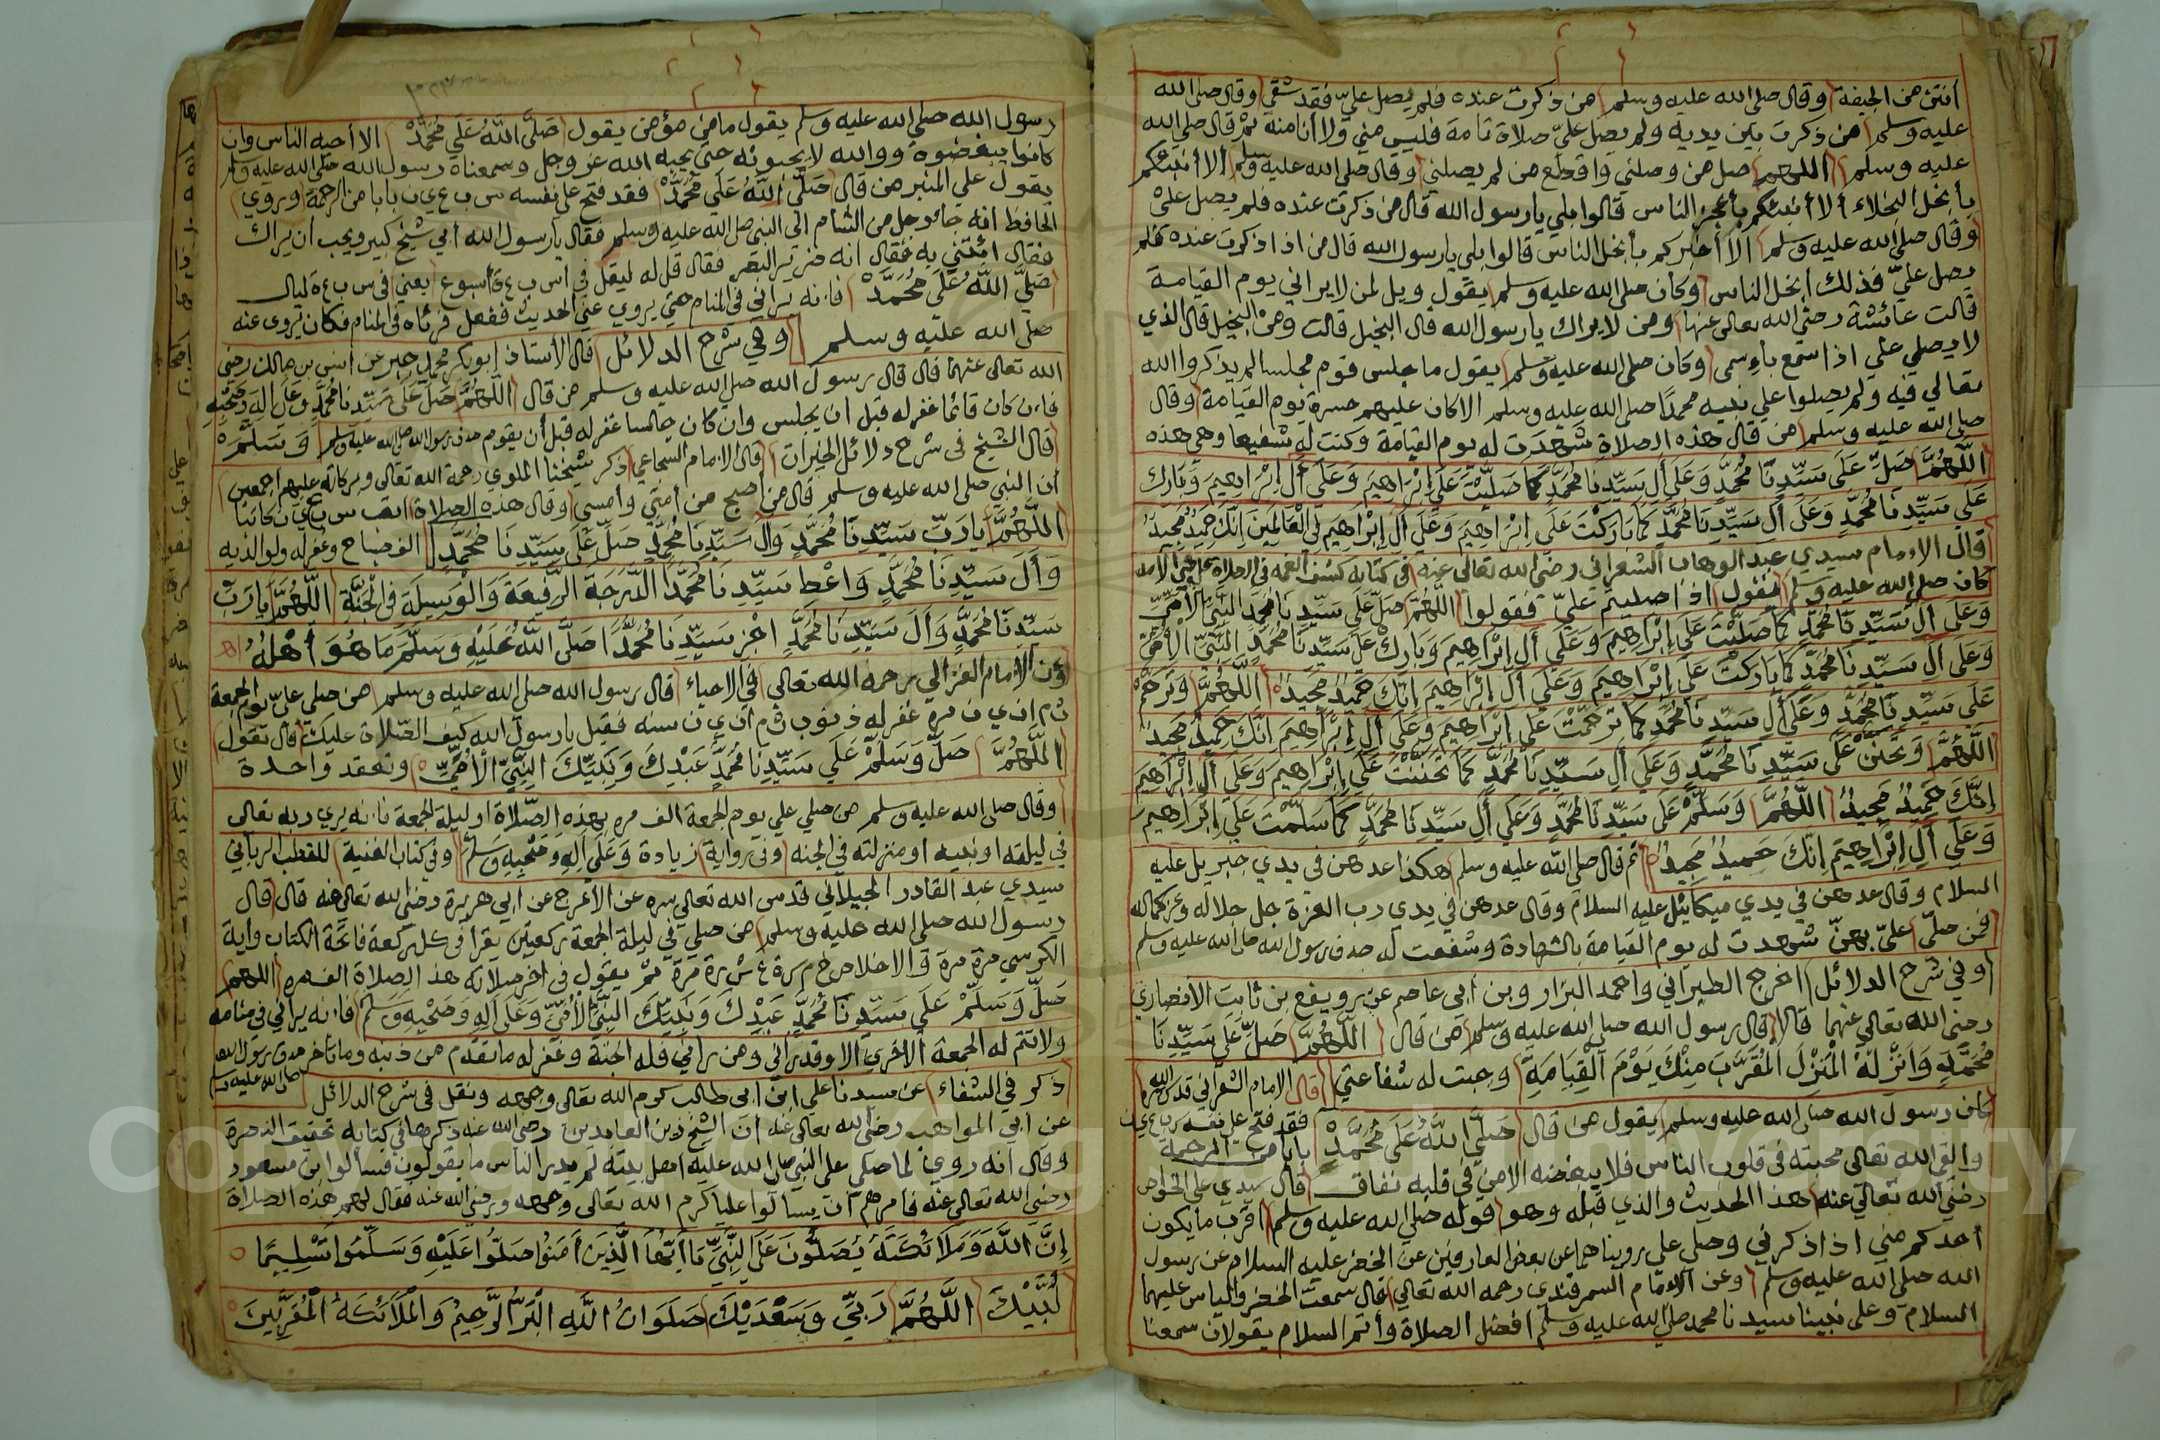 أنتن من الجيفة وقال صلى الله عليه وسلم من ذكرت عنده فلم يصل عليّ فقد شقي وقال صلى الله
عليه وسلم من ذكرت بين يديه ولم يصل عليّ صلاة تامة فليس مني ولا أنا منه ثم قال صلى الله
عليه وسلم اللهم صل من وصلني واقطع من لم يصلني وقال صلى الله عليه وسلم ألا أنبئكم
بأبخل البخلاء ألا أنبئكم بأعجز الناس قالوا بلي يا رسول الله قال من ذكرت عنده فلم يصل عليّ
وقال صلى الله عليه وسلم ألا أخبركم بأبخل الناس قالوا بلي يا رسول الله قال من اذا ذكرت عنده فلم
يصل عليّ فذلك أبخل الناس وكان صلى الله عليه وسلم يقول ويل لمن لا يراني يوم القيامة
قالت عائشة رضي الله تعالى عنها ومن لا يراك يا رسول الله قال البخيل قالت ومن البخيل قال الذي
لا يصلي علي اذا سمع بأسمي وكان صلى الله عليه وسلم يقول ما جلس قوم مجلسا لم يذكروا الله
تعالي فيه ولم يصلوا علي نبيه محمدًا صلى الله عليه وسلم الا كان عليهم حسرة يوم القيامة وقال
صلى الله عليه وسلم من قال هذه الصلاة شهدت له يوم القيامة وكنت له شفيعا وهي هذه
اللَّهُمَّ صَلِّ عَلَى سَيِّدِنَا مُحُمَّدٍ وَعَلَى أَلِ سَيِّدِنَا مُحُمَّدٍ كَمَا صَلَّيْتَ عَلَى إِبْرَاهِيمَ وَعَلَى أَلِ إِبْرَاهِيمَ وَبَارِك
عَلَى سَيِّدِنَا مُحَمَّدٍ وَعَلَى أَلِ سَيِّدِنَا مُحَمَّدٍ كَمَا بَارَكْتَ عَلَى إِبْرَاهِيمَ وَعَلَى أَلِ إِبْرَاهِيمَ فِي الْعَالَمِينَ إِنَّكَ حَمِيدٌ مَجِيدٌ
قال الإمام سيدي عبد الوهاب الشعراني رضي الله تعالى عنه في كتابه كشف الغمه في الصلاة على
كان صلى الله عليه وسلم يقول اذا صليتم عليّ فقولوا اللَّهُمَّ صَلِّ عَلَى سَيِّدِنَا مُحَمَّدٍ النَّبِيِّ الأُمِّيِّ
وَعَلَى أَلِ سَيِّدِنَا مُحَمَّدٍ كَمَا صَلَّيْتَ عَلَى إِبْرَاهِيمَ وَعَلَى أَلِ إِبْرَاهِيمَ وَبَارِكْ عَلَى سَيِّدِنَا مُحَمَّدٍ النَّبِيِّ الْأُمِّيِّ
وَعَلَى أَلِ سَيِّدِنَا مُحَمَّدٍ كَمَا بَارَكْتَ عَلَى إِبْرَاهِيمَ وَعَلَى أَلِ إِبْرَاهِيمَ إِنَّكَ حَمِيدٌ مَجِيدٌ اللَّهُمَّ وَتَرَحَّمْ
عَلَى سَيِّدِنَا مُحَمَّدٍ وَعَلَى أَلِ سَيِّدِنَا مُحَمَّدٍ كَمَا تَرَحَّمْتَ عَلَى إِبْرَاهِيمَ وَعَلَى أَلِ إِبْرَاهِيمَ إِنَّكَ حَمِيدٌ مَجِيدٌ
اللَّهُمَّ وَتَحَنَّنْ عَلَى سَيِّدِنَا مُحَمَّدٍ وَعَلَى أَلِ سَيِّدِنَا مُحَمَّدٍ كَمَا تَحَنَّنْتَ عَلَى إِبْرَاهِيمَ وَعَلَى أَلِ إِبْرَاهِيمَ
إِنَّكَ حَمِيدٌ مَجِيدٌ اللَّهُمَّ وَسَلِّمْ عَلَى سَيِّدِنَا مُحَمَّدٍ وَعَلَى أَلِ سَيِّدِنَا مُحَمَّدٍ كَمَا سَلَّمْتَ عَلَى إِبْرَاهِيمَ
وَعَلَى أَلِ إِبْرَاهِيمَ إِنَّكَ حَمِيدٌ مَجِيدٌ ثم قال صلى الله عليه وسلم هكذا عدهن في يدي جبريل عليه
السلام وقال عدهن في يدي ميكائيل عليه السلام وقال عدهن في يدي رب العزة جل جلاله وعز كماله
فمن صلّى عليّ بهنّ شهدت له يوم القيامة بالشهادة وشفعت له صدق رسول الله صلى الله عليه وسلم
وفي شرح الدلائل اخرج الطبراني واحمد البزار وبن أبي عاصم عن رويفع بن ثابت الأنصاري
رضي الله تعالى عنهما قالا قال رسول الله صلى الله عليه وسلم من قال اللَّهُمَّ صَلِّ عَلَى سَيِّدِنَا
مُحَمَّدٍ وَانْزِلْهُ الْمَنْزِلَ الْمُقَرَّبَ مِنْكَ يَوْمَ الْقِيَامَةِ وجبت له شفاعتي قال الإمام الشعراني قدس الله سره
كان رسول الله صلى الله عليه وسلم يقول من قال صَلَّى اللَّهُ عَلَى مُحَمَّدْ فقد فتح على نفسه س ب ع ي ن
والقى الله تعالى محبته في قلوب الناس فلا يبغضه الا من في قلبه نفاق بابا من الرحمة قال سيدي علي الخواص
رضي الله تعالى عنه هذا الحديث والذي قبله وهو قوله صلى الله عليه وسلم اقرب ما يكون
أحدكم مني اذا ذكرني وصلى علي رويناهما عن بعض العارفين عن الخضر عليه السلام عن رسول
الله صلى الله عليه وسلم وعن الإمام السمرقندي رحمه الله تعالى قال سمعت الخضر والياس عليهما
السلام وعلى نبينا سيدنا محمد صلى الله عليه وسلم افضل الصلاة وأتم السلام يقولان سمعنا
رسول الله صلى الله عليه وسلم يقول ما من مؤمن يقول صَلَّى اللَّهُ عَلَى مُحَمَّدْ الا أحبه الناس وان
كانوا يبغضوه ووالله لا يحبونه حتى يحبه الله عز وجل وسمعناه رسول الله صلى الله عليه وسلم
يقول على المنبر من قال صَلَّى اللَّهُ عَلَى مُحَمَّدْ فقد فتح على نفسه س ب ع ي ن بابا من الرحمة وروي
الحافظ انه جاء رجل من الشام الى النبي صلى الله عليه وسلم فقال يا رسول الله أبي شيخ كبير ويحب أن يراك
فقال ائتني به فقال انه ضرير البصر فقال قل له ليقل في أس ب ع أسبوع يعني في س ب ع ة ليال
صَلَّى اللَّهُ عَلَى مُحَمَّدْ فإنه يراني في المنام حتى يروي عني الحديث ففعل فرأه في المنام فكان يروى عنه
صلى الله عليه وسلم وفي شرح الدلائل قال الأستاذ ابو بكر محمد جبر عن انس بن مالك رضي
الله تعالى عنهما قال قال رسول الله صلى الله عليه وسلم من قال اللَّهُمَّ صَلِّ عَلَى سَيِّدِنَا مُحَمَّدٍ وَعَلَى آلِهِ وَصَحْبِهِ
وَسَلِّمْ فإن كان قائما غفر له قبل ان يجلس وان كان جالسا غفر له قبل أن يقوم صدق رسول الله صلى الله عليه وسلم
قال الشيخ في شرح دلائل الخيرات قال الامام السجاعي ذكر شيخنا الملوى رحمة الله تعالى وبركاته عليهم اجمعين
أن النبي صلى الله عليه وسلم قال من أصبح من أمتي وأمسى وقال هذه الصلاة اتعب س ب ع ي ن كاتبا
اللَّهُمَّ يَا رَبَّ سَيِّدِنَا مُحَمَّدٍ وَأَلِ سَيِّدِنَا مُحَمَّدٍ صَلِّ عَلَى سَيِّدِنَا مُحَمَّدٍ الف صباح وغفر له ولوالديه
وَأَلِ سَيِّدِنَا مُحَمَّدٍ وَاعْطِ سَيِّدِنَا مُحَمَّدًا الدَّرَجَةَ الرَّفِيعَةَ وَالْوَسِيلَةَ فِي الْجَنَّةِ اللَّهُمَّ يَا رَبَّ
سَيِّدِنَا مُحَمَّدٍ وَأَلِ سَيِّدِنَا مُحَمَّدٍ اجْزِ سَيِّدِنَا مُحَمَّدًا صَلَّى اللَّهُ عَلَيْهِ وَسَلَّمَ مَا هُوَ أَهْلُهُ
وعن الإمام الغزالي رحمه الله تعالى في الاحياء قال رسول الله صلى الله عليه وسلم من صلى عليّ يوم الجمعة
ث م ان ي ن مرة غفر له ذنوب ث م ان ي ن سنه فقيل يا رسول الله كيف الصلاة عليك قال تقول
اللَّهُمَّ صَلِّ وَسَلِّمْ عَلَى سَيِّدِنَا مُحَمَّدٍ عَبْدِكَ وَنَبِيِّكَ النَّبِيِّ الْأُمِّيِّ وتعقد واحدة
وقال صلى الله عليه وسلم من صلى علي يوم الجمعة الف مره بهذه الصّلاة او ليلة الجمعة فانه يري ربه تعالى
في ليلته او نبيه او منزلته في الجنه وفي رواية زيادة وَعَلَى آلِهِ وَصَحْبِهِ وَسَلِّمْ وفي كتاب الغنية للقطب الرباني
سيدي عبد القادر الجيلاني قدس الله تعالى سره عن الأعرج عن أبي هريرة رضي الله تعالى عنه قال قال
رسول الله صلى الله عليه وسلم من صلى في ليلة الجمعة ركعتين يقرأ في كل ركعة فاتحة الكتاب وأية
الكرسي مرة مرة والاخلاص خ م س ة ع ش ر ة مرة ثم يقول في اخر صلاته هذه الصلاة الف مره اللهم
صَلِّ وَسَلِّمْ عَلَى سَيِّدِنَا مُحَمَّدٍ عَبْدِكَ وَنَبِيِّكَ النَّبِيِّ الْأُمِّيِّ وَعَلَى آلِهِ وَصَحْبِهِ وَسَلِّمْ فإنه يراني في منامه
ولا تتم له الجمعة الأخرى الا وقد رأني ومن رأني فله الجنة وغفر له ما تقدم من ذنبه وما تأخر صدق رسول الله
صلى الله عليه وسلم
ذكر في الشفاء عن سيدنا علي ابن ابي طالب كرم الله تعالى وجهه ونقل في شرح الدلائل
عن أبي المواهب رضي الله تعالى عنه أن الشيخ زين العابدين رضي الله عنه ذكرها في كتابه تحقيق النصرة
وقال انه روي لما صلي على النبي صلى الله عليه اهل بيته لم يدر الناس ما يقولون فسألوا ابن مسعود
رضي الله تعالى عنه فأمرهم أن يسألوا عليا كرم الله تعالى وجهه ورضي الله عنه فقال لهم هذه الصلاة
إِنَّ اللَّهَ وَمَلَائِكَتَهُ يُصَلُّونَ عَلَى النَّبِيِّ يَا أَيُّهَا الَّذِينَ أَمَنُوا صَلُّوا عَلَيْهِ وَسَلِّمُوا تَسْلِيمًا
لَبَّيْكَ اللَّهُمَّ رَبِّي وَسَعْدَيْكَ صَلَوَاتُ اللَّهِ الْبَرُّ الرَّحِيمُ وَالْمَلَائِكَةُ الْمُقَرَّبِينَ